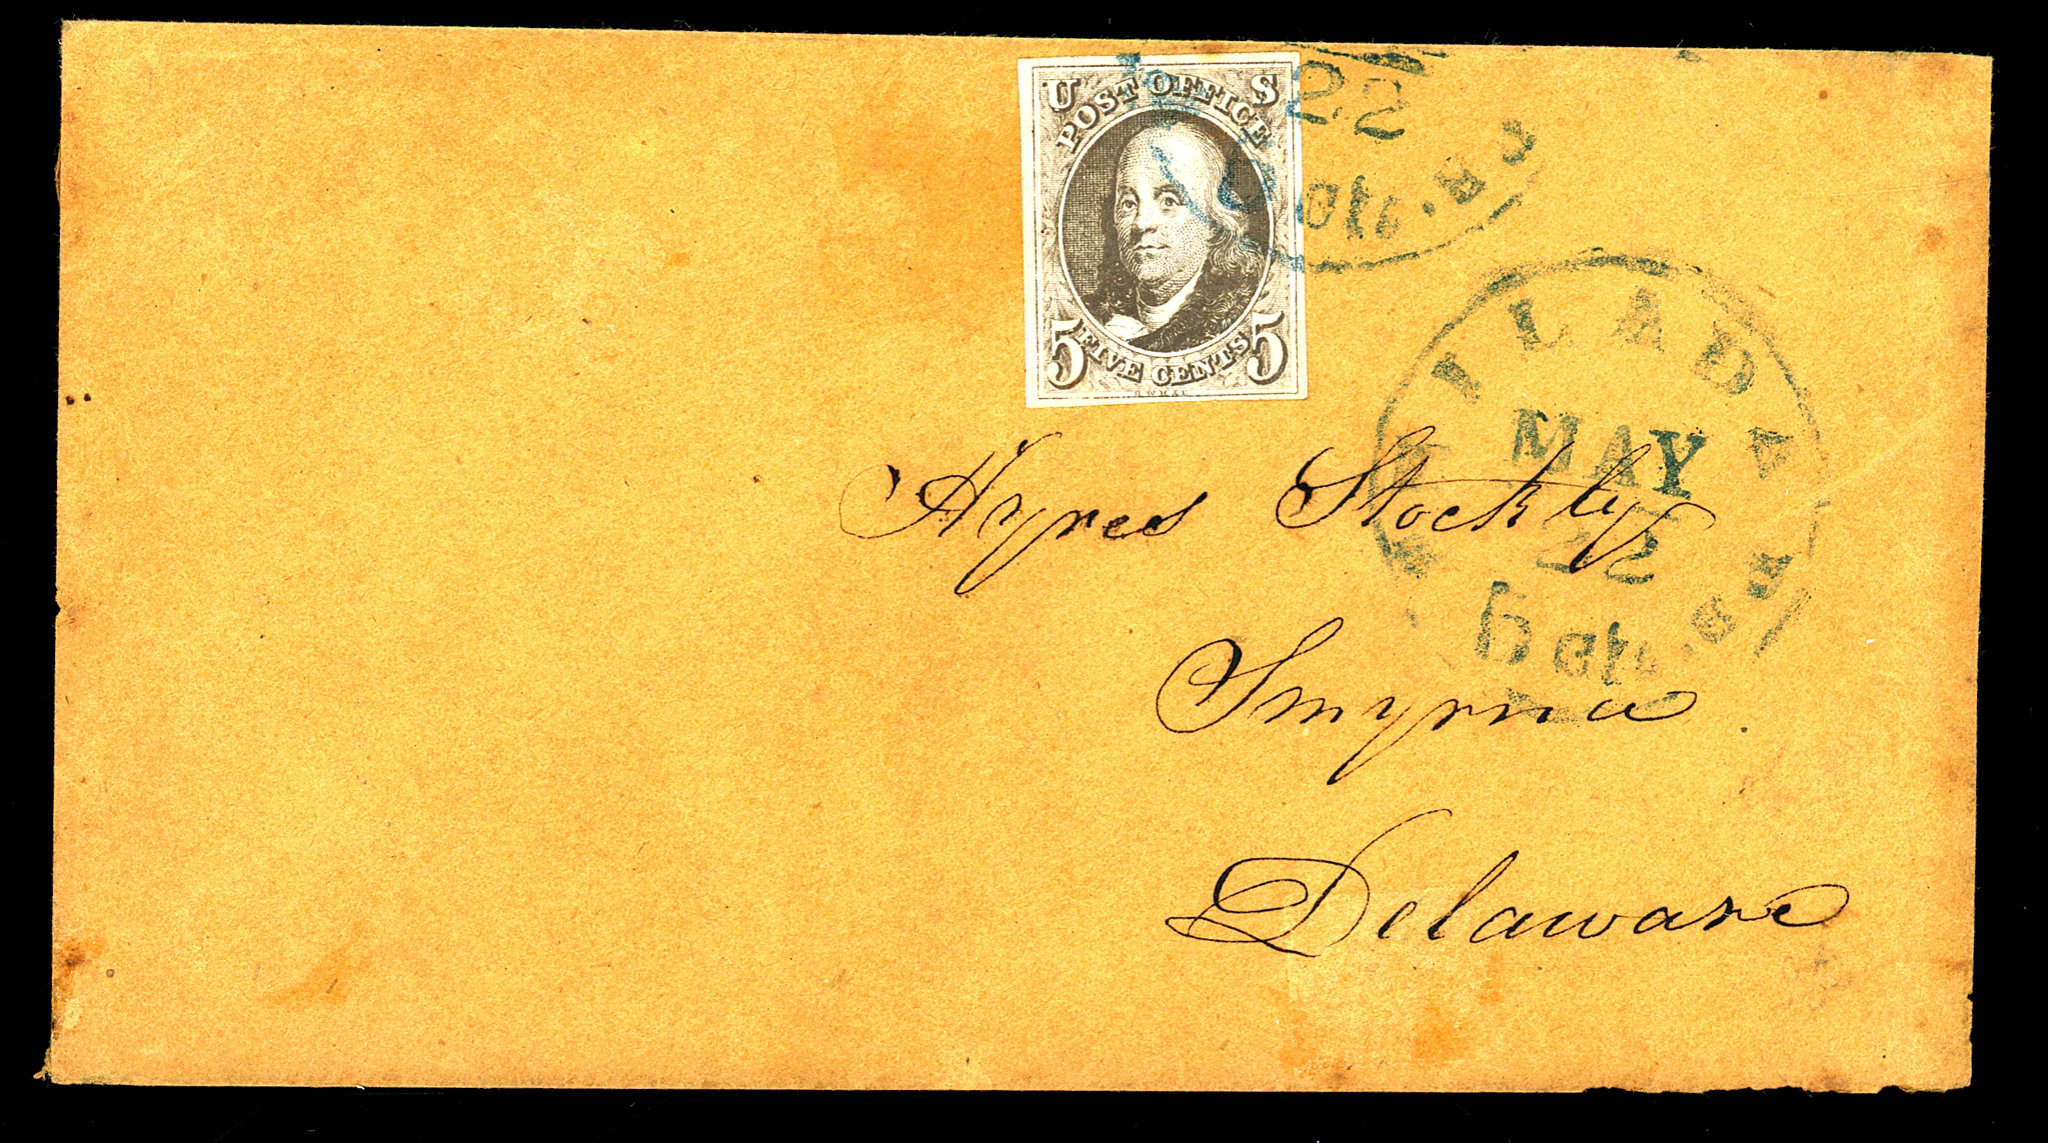 U S
POST OFFICE
5 FIVE CENTS 5
R.W.H.&E.
22
5 cts.
PHILADA
MAY
22
5 cts.
Pa.
Ayres Stockly
Smyrna
Delaware